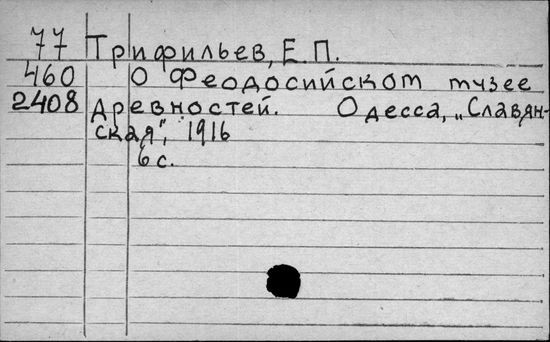 77 Трифильев, Е.П.
460 О Феодосийском музее
2408 древностей. Одесса, „Славян-
ская", 1916
6 с.